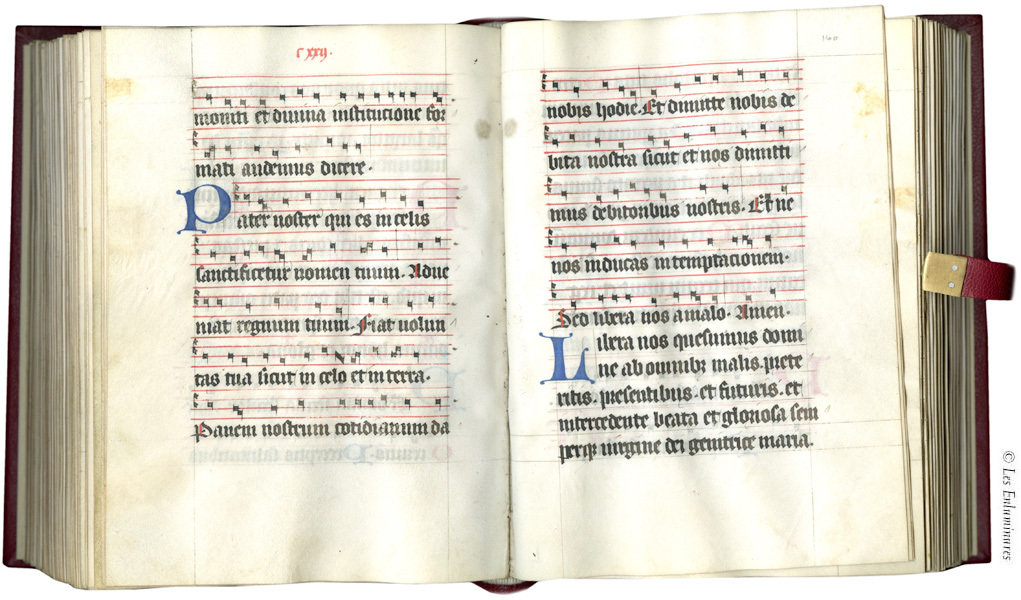 c xxij.
moniti et diuina institucione for
mati audemus dicere.
Pater noster qui es in celis
sanctificetur nomen tuum. Adue
niat regnum tuum. Fiat uolun
tas tua sicut in celo et in terra.
Panem nostrum cotidianum da
160
nobis hodie. Et dimitte nobis de
bita nostra sicut et nos dimitti
mus debitoribus nostris. Et ne
nos inducas in temptacionem.
Sed libera nos a malo. Amen.
Libera nos quesumus domi
ne ab omnibz malis. prete
ritis. presentibus. et futuris. et
intercedente beata et gloriosa sem
perqz uirgine dei genitrice maria.
© Les Enluminures